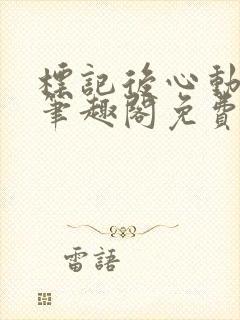 標記後心動
筆趣閣免費
雷語